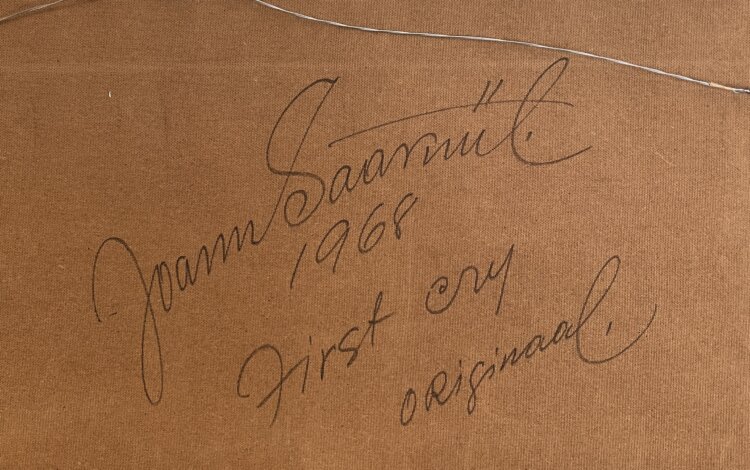 Joann Saarniit.
1968
First cry
ORiginaal.